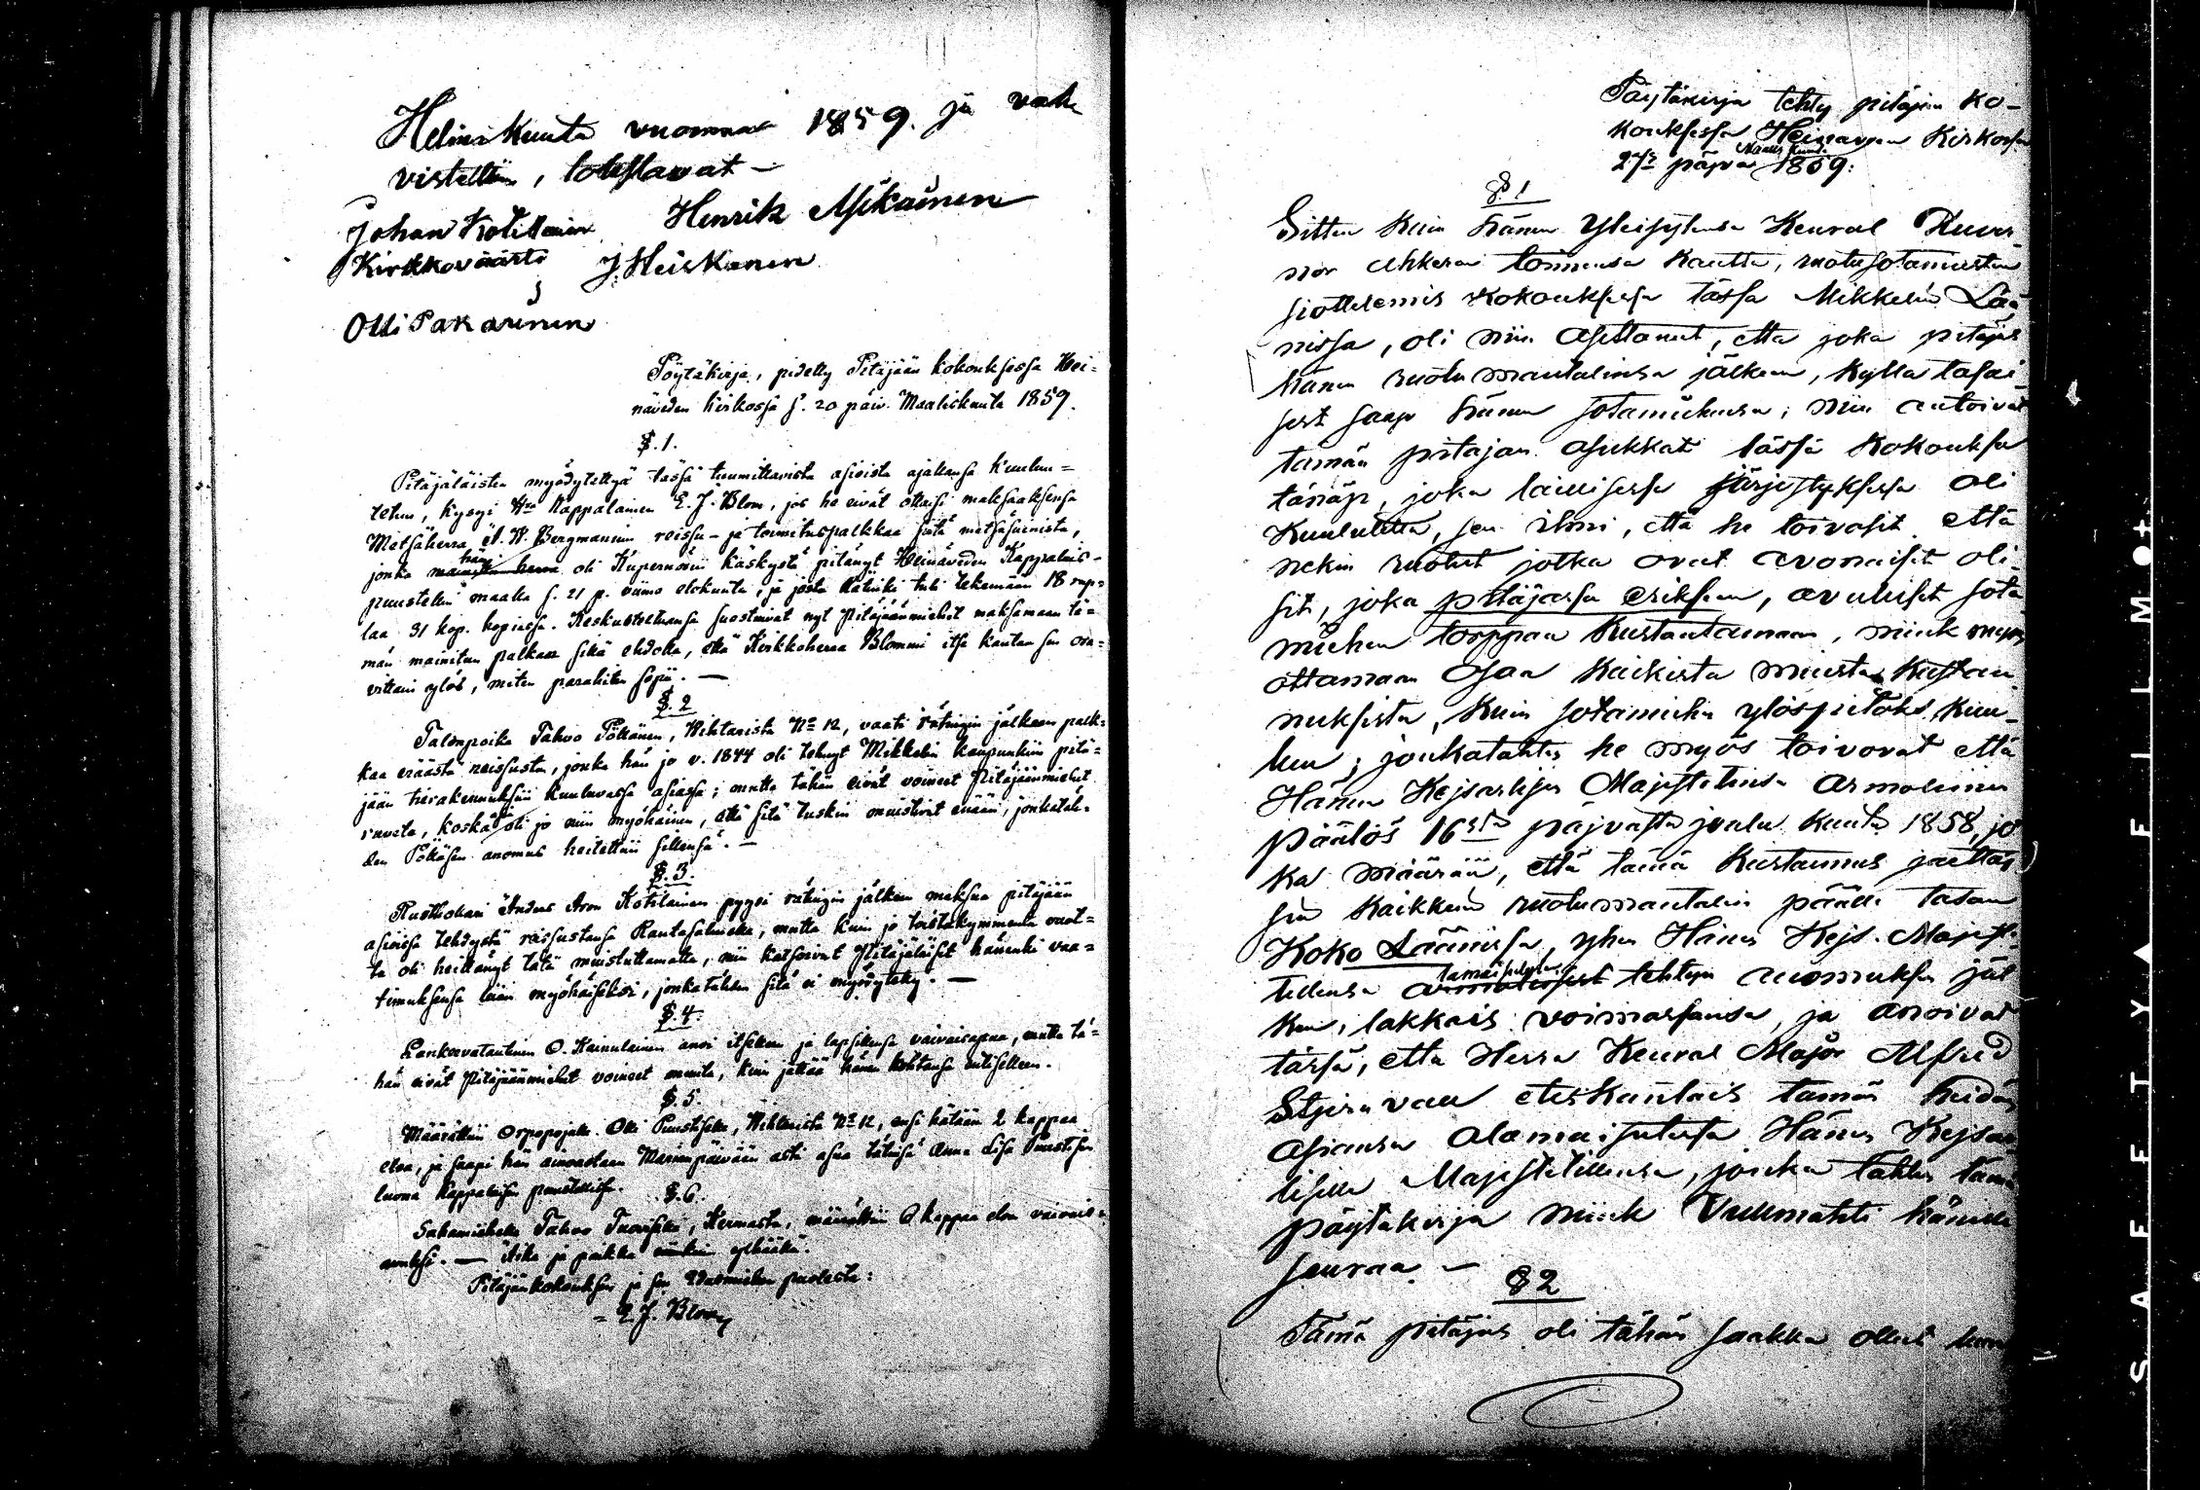 Helmikuuta vuonna 1859. ja vah
vistettiin, todistavat —
Johan Kotilainen Henrik Asikainen
Kirkkoväärti J Heiskanen
Olli Pakarinen
Pöytäkirja, pidetty Pitäjään kokouksessa Hei-
näveden kirkossa s. 20 päiv. Maaliskuuta 1859.
§. 1.
Pitäjäläisten myödytettyä tässä tuumittavista asioista ajallansa kuulu=
tetun, kysyi Hra Kappalainen E. J. Blom, jos he eivät ottaisi maksaaksensa
Metsäherra A. W. Bergmannin reissu- ja toimituspalkkaa siitä metsäsyynistä,
jonka hän oli Kupernöörin käskystä pitänyt Heinäveden Kappalais-
puustellin maalla s. 21 p. viime elokuuta, ja josta Rätinki tuli tekemään 18 rup=
laa 31 kop. hopiassa. Keskusteltuansa suostuivat nyt Pitäjäänmiehet maksamaan tä=
män mainitun palkan sillä ehdolla, että Kirkkoherra Blommi itse kantaa sen
ylös, miten parahiten sopii. —
§. 2
Talonpoika Tahvo Pölläinen, Wihtarista No 12, vaati rätingin jälkeen palk=
kaa eräästä reissusta, jonka hän jo v. 1844 oli tehnyt Mikkelin kaupunkiin pitä=
jään kuuluvassa asiassa; mutta tähän eivät voineet Pitäjäänmiehet
ruveta, koska oli jo niin myöhäinen, että sitä tuskin muistivat enään, jonkatäh=
den Pölläsen anomus heitettiin sillensä. —
§. 3.
Rusthollari Anders Aron Kotilainen pyysi rätingin jälkeen maksua pitäjään
asioissa tehdystä reissustansa Rantasalmella, mutta kuin jo toistakymmentä vuot=
ta oli heittänyt tätä muistuttamatta, niin katsoivat Pitäjäläiset hänenki vaa=
timuksensa liian myöhäiseksi, jonkatähden sitä ei myödytetty. —
§. 4.
O. Kainulainen anoi itselleen ja lapsillensa vaivaisapua, mutta tä=
hän eivät Pitäjäänmiehet voineet muuta, kuin jättää hänen kohtansa entiselleen.
§. 5.
Määrättiin orpopojalle Olli Puustiselle, Wihtarista No 12, ensi hätään 2 kappaa
eloa, ja saapi hän ainoastaan Marianpäivään asti asua tätinsä Anna Lisa Puustisen
luona Kappalaisen puustellissa.
§. 6.
Tahvo Tuoviselle, Kermasta, määrättiin 6 kappaa eloa vaivais=
avuksi. — Aika ja paikka ylhäällä.
Pitäjänkokouksen ja sen Esimiehen puolesta:
E. J. Blom
Pöytäkirja tehty pitäjän ko-
kouksessa Heinäveen Kirkossa
27ä päjvä Maalis kuuta 1859:
§. 1
Sitten kuin hänen Ylhäisytensä Kenral Kuver-
nör ahkeran toimensa kautta, ruotusotamiesten
kokouksessa tässä Mikkelin Lää
nissä, oli niin asettanut, että joka pitäjäs
hänen ruotu mantalinsa jälkeen, kyllä tasai-
sest saap hänen sotamiehensä; niin anoivat
tämän pitäjän asukkat tässä kokouksessa
tänäp, joka laillisessa järjestyksessä oli
kuulutettu, sen ihmi, että he toivosit että
nekin ruotut jotka ovat avonaiset oli-
sit, joka pitäjässä eriksen, avuliset sota
miehen torppaa kustantamaan, niink myös
ottamaan osaa kaikista muista kustan-
nuksista, kuin sotamiehen ylöspitoks kuu-
luu; jonkatähten he myös toivovat että
Hänen Kejsarlisen Majestetinsa Armolinen
päätös 16sta päjvästä joulu kuuta 1858, jo
ka määrää, että tämä kustannus jaettap
sen kaikkein ruotumantalin päälle tasan
Koko Läänissä, yhen Hänen Kejs. Majest.
tillensä tehtyn anomuksen jäl
keen, lakkais voimassansa, ja anoivat
tässä, että Herra Kenral Majör Alfred
Stjernvall eteskantais tämän heidän
asiansa alamaisutessa Hänen Kejsar
liselle Majestetillensä, jonka tähten tämä
päytäkirja niink Vullmahti hänelle
seuraa. —
§ 2
Tämä pitäjäs oli tähän saakka ollut
SAFETY FILM